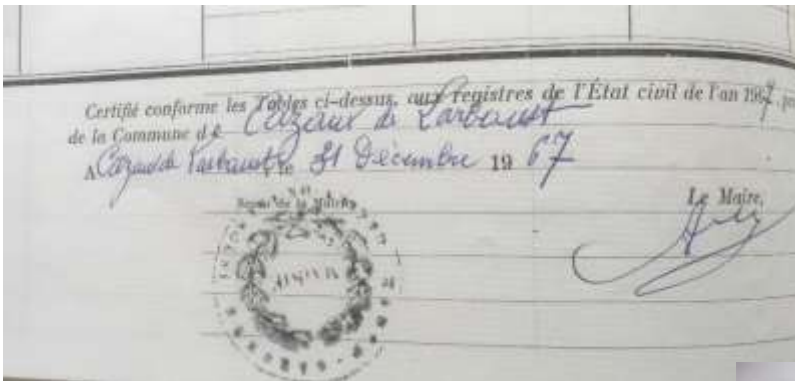 Certifié conforme les Tables ci-dessus, aux registres de l'État civil de l'an 1967
de la Commune de Cazaux de Larboust
A Cazaux de Larboust, le 31 Décembre 1967
Le Maire,
Sceau de la Mairie